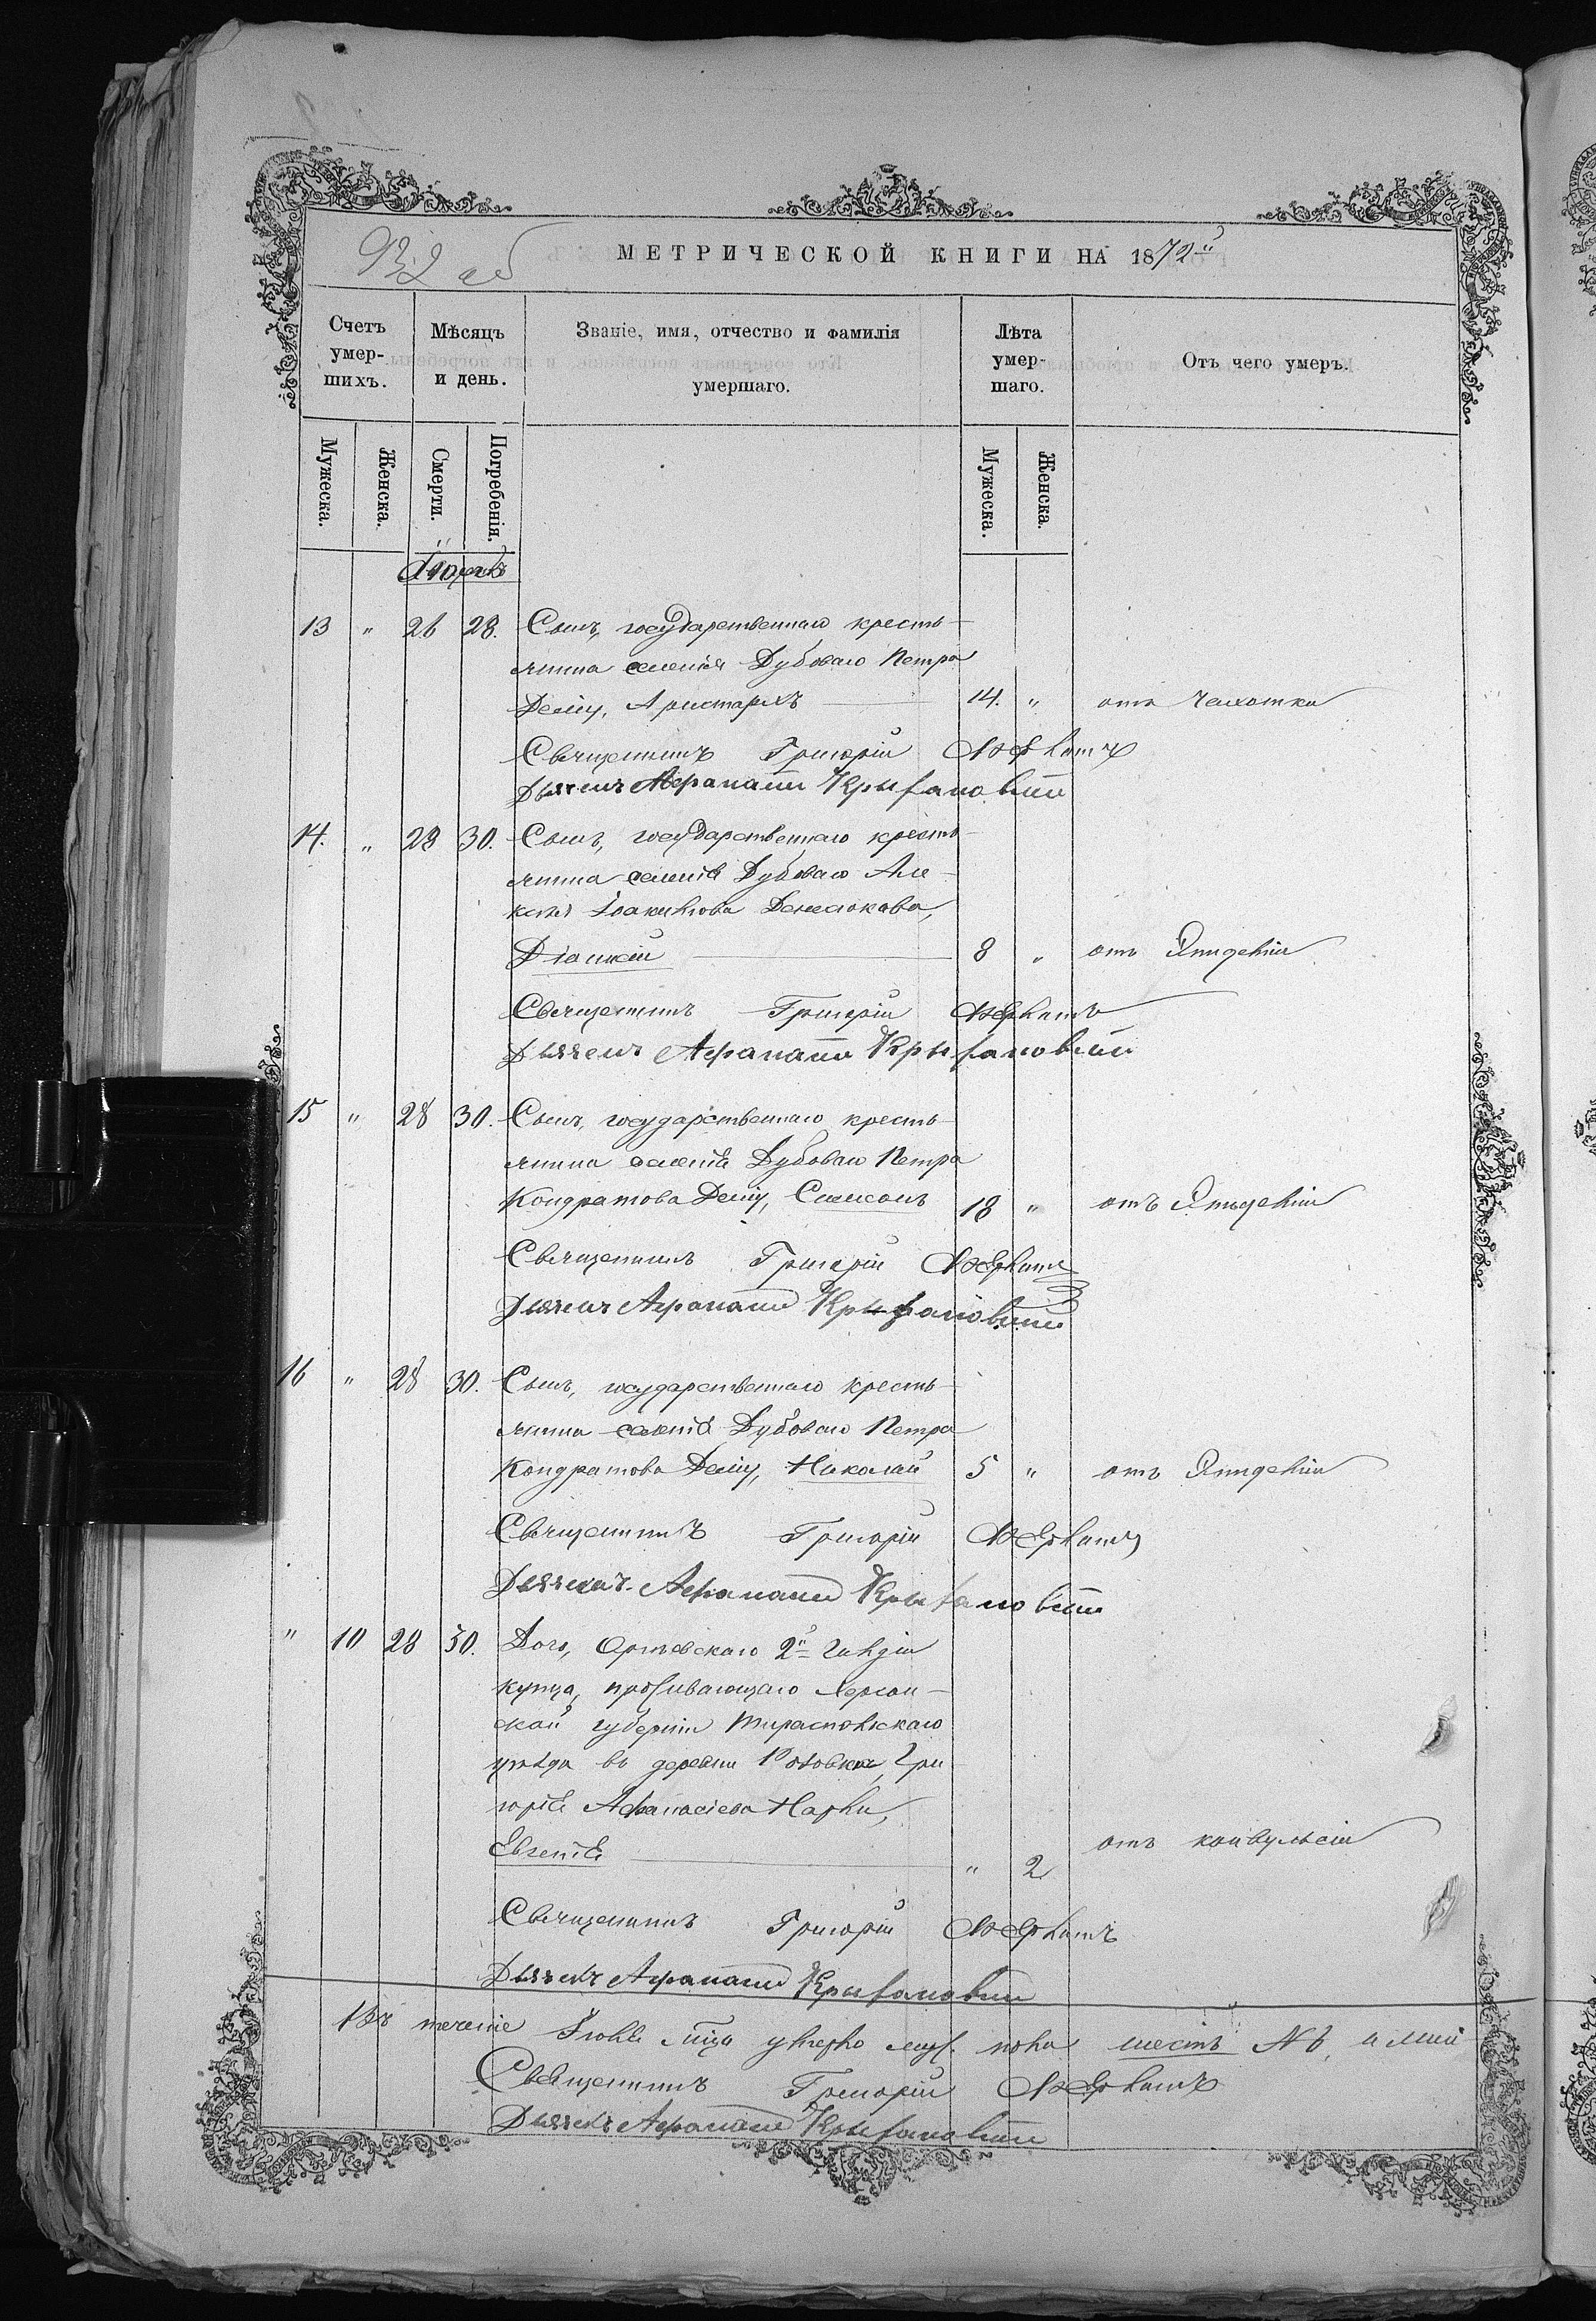 932 об
МЕТРИЧЕСКОЙ КНИГИ НА 1872й
Счетъ умер-шихъ.
Мѣсяцъ и день.
Званіе, имя, отчество и фамилія умершаго.
Лѣта умер-шаго.
Отъ чего умеръ.
Мужеска.
Женска.
Смерти.
Погребенія.
Мужеска.
Женска.
13 " 26 28. Сынъ, государственнаго кресть-
янина селенія Дубоваго Петра
Деліу, Аристархъ 14. " отъ чахотки
Священникъ Григорій
Дьячекъ Афанасій Крыжановскій
14. " 29 30. Сынъ, государственнаго кресть-
янина селенія Дубоваго Але-
ксѣя Іоакимова
8 " отъ Эпидеміи
Священникъ Григорій
Дьячекъ Афанасій Крыжановскій
15 " 28 30. Сынъ, государственнаго кресть-
янина селенія Дубоваго Петра
Кондратова Деліу, Симеонъ 18 " отъ Эпидеміи
Священникъ Григорій
Дьячекъ Афанасій Крыжановскій
16 " 28 30. Сынъ, государственнаго кресть-
янина селенія Дубоваго Петра
Кондратова Деліу, Николай 5 " отъ Эпидеміи
Священникъ Григорій
Дьячекъ Афанасій Крыжановскій
" 10 28 30. Дочь, Оргѣевскаго 2й гильдіи
купца, проживающаго Херсон-
ской губерніи Тираспольскаго
уѣзда въ деревни Гри
горія Афанасіева
Евгенія " 2 отъ конвульсіи
Священникъ Григорій
Дьячекъ Афанасій Крыжановскій
Въ теченіе Іюля мѣца умерло муж. пола шесть № 6, а жен
Священникъ Григорій
Дьячекъ Афанасій Крыжановскій